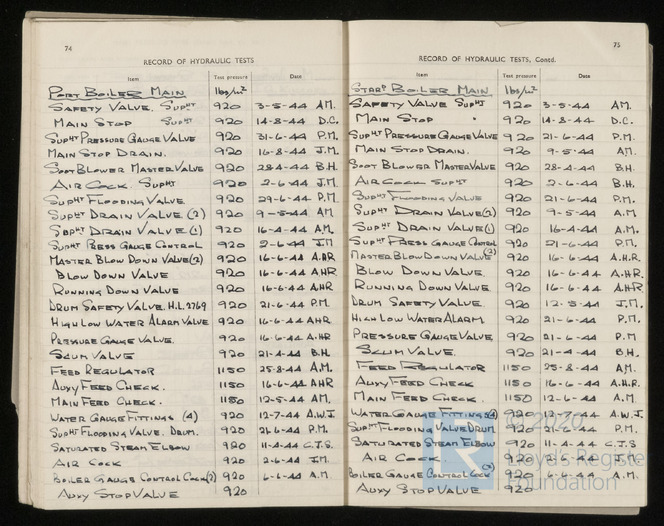 74
RECORD OF HYDRAULIC TESTS
Item Test pressure Date
PORT BOILER MAIN lbs/in²
SAFETY VALVE. SUPHT 920 3-5-44 A.M.
MAIN STOP SUPHT 920 14-8-44 D.C.
SUPHT PRESSURE GAUGE VALVE 920 31-6-44 P.M.
MAIN STOP DRAIN. 920 16-8-44 J.M.
SOOT BLOWER MASTER VALVE 920 28-4-44 B.H.
AIR COCK. SUPHT 920 2-6-44 J.M
SUPHT FLOODING VALVE 920 29-6-44 P.M.
SUPHT DRAIN VALVE (2) 920 9-5-44 AM
SUPHT DRAIN VALVE (1) 920 16-4-44 A.M.
SUPHT PRESS GAUGE CONTROL 920 2-6-44 J.M
MASTER BLOW DOWN VALVE (2) 920 16-6-44 A.HR
BLOW DOWN VALVE 920 16-6-44 A.HR
RUNNING DOWN VALVE 920 16-6-44 A.HR
DRUM SAFETY VALVE. H.L. 2769 920 21-6-44 P.M
HIGH LOW WATER ALARM VALVE 920 16-6-44 A.HR
PRESSURE GAUGE VALVE. 920 16-6-44 A.HR
SCUM VALVE 920 21-4-44 B.H.
FEED REGULATOR 1150 25-8-44 A.M.
AUXY FEED CHECK. 1150 16-6-44 AHR
MAIN FEED CHECK. 1150 12-5-44 AM.
WATER GAUGE FITTINGS (4) 920 12-7-44 A.W.J.
SUPHT FLOODING VALVE. DRUM. 920 21-6-44 P.M.
SATURATED STEAM ELBOW 920 11-4-44 C.J.S.
AIR COCK 920 2-6-44 J.M.
BOILER GAUGE CONTROL COCK (2) 920 6-6-44 A.M
AUXY STOP VALVE 920
75
RECORD OF HYDRAULIC TESTS, Contd.
Item Test pressure Date
STARBD BOILER MAIN lbs/in²
SAFETY VALVE SUPHT 920 3-5-44 AM.
MAIN STOP " 920 14-8-44 D.C.
SUPHT PRESSURE GAUGE VALVE 920 21-6-44 P.M.
MAIN STOP DRAIN. 920 9-5-44 AM.
SOOT BLOWER MASTER VALVE 920 28-4-44 B.H.
AIR COCK SUPHT 920 2-6-44 B.H.
SUPHT FLOODING VALVE 920 21-6-44 P.M.
SUPHT DRAIN VALVE (2) 920 9-5-44 A.M
SUPHT DRAIN VALVE (1) 920 16-4-44 A.M.
SUPHT PRESS GAUGE CONTROL 920 21-6-44 P.M.
MASTER BLOW DOWN VALVE (2) 920 16-6-44 A.H.R.
BLOW DOWN VALVE 920 16-6-44 A.H.R.
RUNNING DOWN VALVE 920 16-6-44 A.H.R
DRUM SAFETY VALVE 920 12-5-44 J.M.
HIGH LOW WATER ALARM 920 21-6-44 P.M.
PRESSURE GAUGE VALVE 920 21-6-44 P.M
SCUM VALVE. 920 21-4-44 B.H.
FEED REGULATOR 1150 25-8-44 AM.
AUXY FEED CHECK 1150 16-6-44 A.H.R.
MAIN FEED CHECK. 1150 12-6-44 A.M
WATER GAUGE FITTINGS (4) 920 12-7-44 A.W.J.
SUPHT FLOODING VALVE DRUM 920 21-6-44 P.M.
SATURATED STEAM ELBOW 920 11-4-44 C.J.S
AIR COCK. 920 2-6-44 J.M.
BOILER GAUGE CONTROL COCK (2) 920 6-6-44 A.M.
AUXY STOP VALVE 920
Lloyd's Register
Foundation